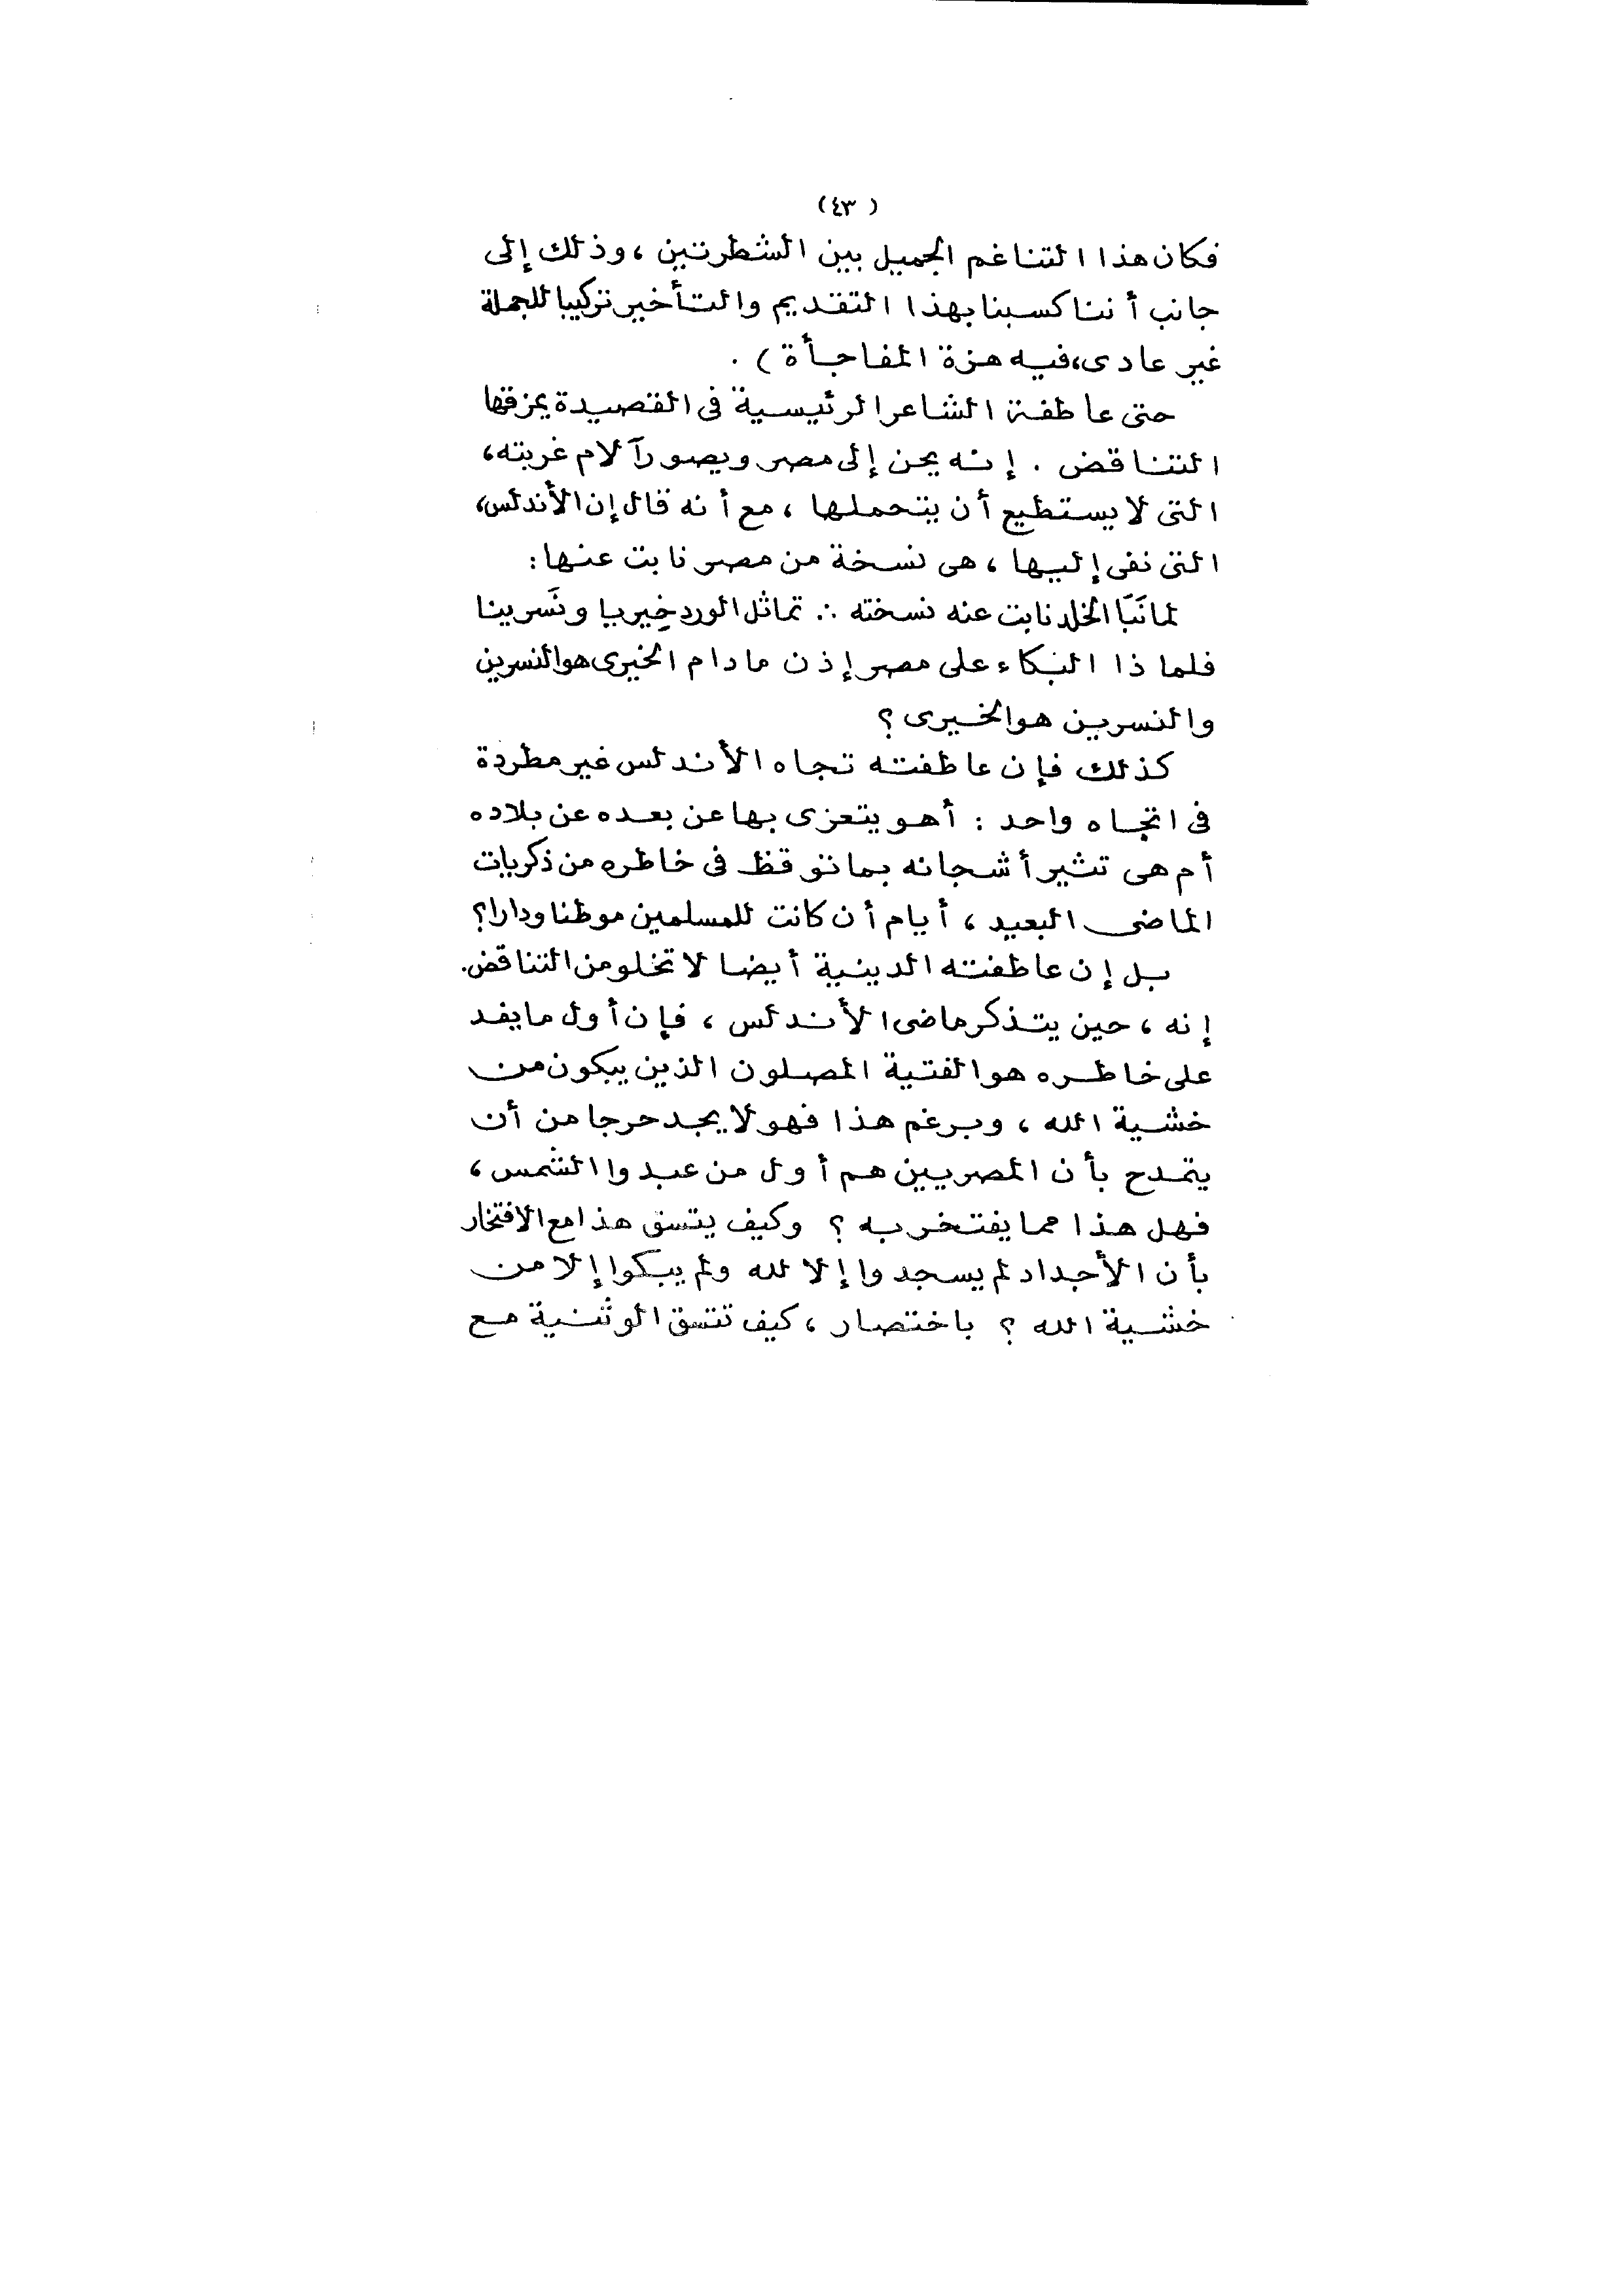 (٤٣)
فكان هذا التناغم الجميل بين الشطرتين ، وذلك إلى
جانب أننا كسبنا بهذا التقديم والتأخير تركيبا للجملة
غير عادى، فيه هزة المفاجأة ) .
حتى عاطفة الشاعر الرئيسية فى القصيدة يمزقها
التناقض . إنه يحن إلى مصر ويصور آلام غربته،
التى لا يستطيع أن يتحملها ، مع أنه قال إن الأندلس،
التى نفى إليها ، هى نسخة من مصر نابت عنها :
لما نَبَا الخلد نابت عنه نسخته ∴ تماثل الورد خِيريا ونَسرينا
فلماذا البكاء على مصر إذن مادام الخيرى هو النسرين
والنسرين هو الخيرى ؟
كذلك فإن عاطفته تجاه الأندلس غير مطردة
فى اتجاه واحد : أهو يتعزى بها عن بعده عن بلاده
أم هى تثير أشجانه بما توقظ فى خاطره من ذكريات
الماضى البعيد ، أيام أن كانت للمسلمين موطنا ودارا؟
بل إن عاطفته الدينية أيضا لا تخلو من التناقض.
إنه ، حين يتذكر ماضى الأندلس ، فإن أول ما يفد
على خاطره هو الفتية المصلون الذين يبكون من
خشية الله ، وبرغم هذا فهو لا يجد حرجا من أن
يتمدح بأن المصريين هم أول من عبدوا الشمس ،
فهل هذا مما يفتخر به ؟ وكيف يتسق هذا مع الافتخار
بأن الأجداد لم يسجدوا إلا لله ولم يبكوا إلا من
خشية الله ؟ باختصار ، كيف تتسق الوثنية مع